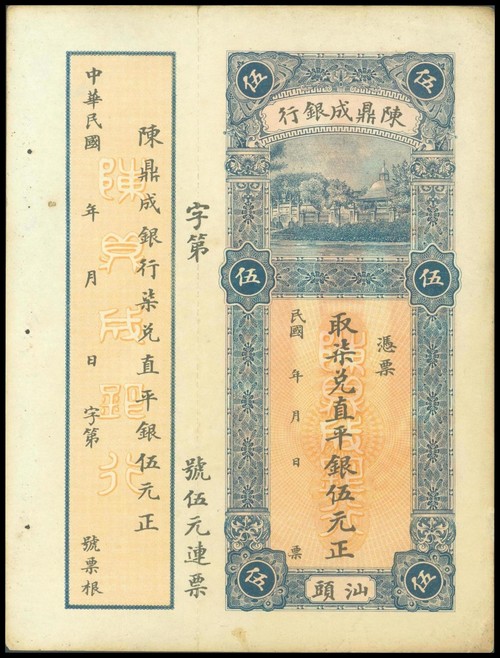 伍
伍
陳鼎成銀行
伍
伍
憑票
取柒兑直平銀伍元正
民國 年 月 日 票
伍
伍
汕頭
字第 號伍元連票
陳鼎成銀行柒兑直平銀伍元正
陳鼎成銀行
中華民國 年 月 日 字第 號票根